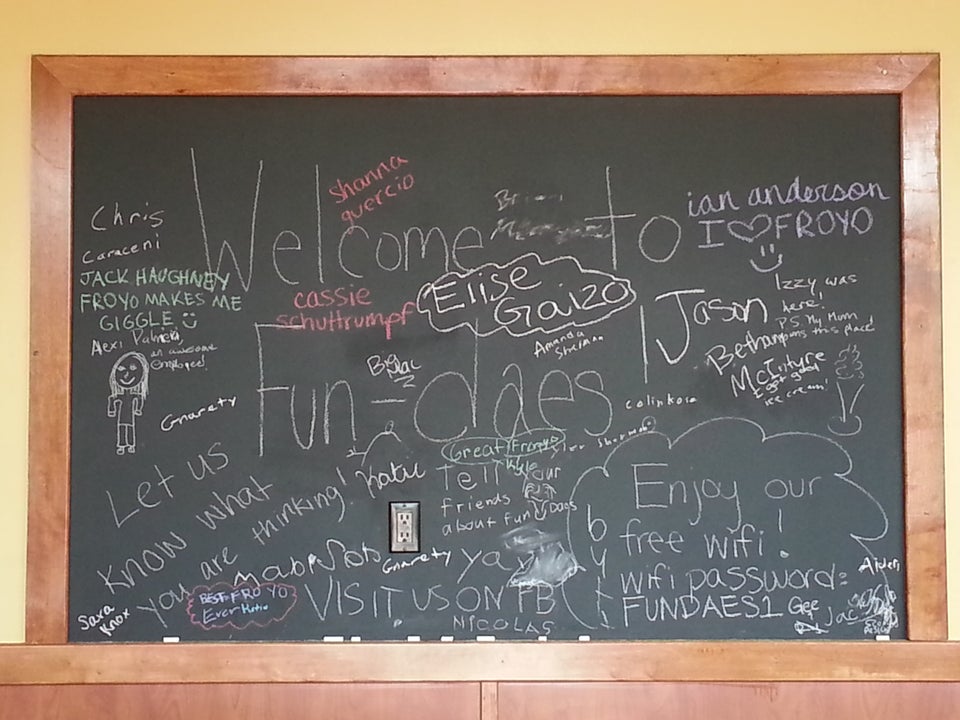 Welcome to
Fun-daes
shanna
guercio
ian anderson
I FROYO
Chris
Caraceni
JACK HAUGHNEY
FROYO MAKES ME
GIGGLE
Alexi Palmeri
an awesome
employee!
cassie
schuttrumpf
Elise
Gaizo
Amanda
Sherman
Jason
Izzy was
here!
P.S My Mum
runs this place!
Bethann
McInture
I get good
ice cream!
Gnarety
colinkose
Great Froyo
Kyle
Let us
Know what
you are
thinking!
Katie
Tell your
friends
about Fun Daes
Enjoy our
free wifi!
wifi password:
FUNDAES1
Gnarety
ya
Aiden
Gee
Jac
Sara
Knox
BEST FROYO
Ever
VISIT US ON FB
NICOLAS